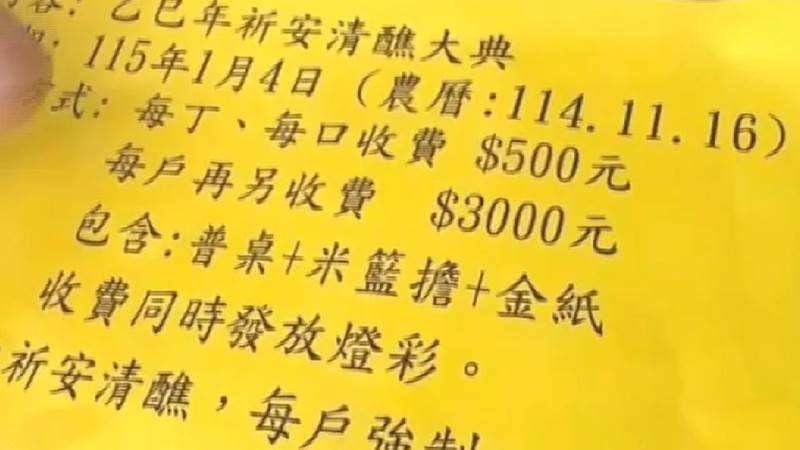 容: 乙巳年祈安清醮大典
期: 115年1月4日（農曆:114.11.16）
方式: 每丁、每口收費 $500元
每戶再另收費 $3000元
包含:普桌+米籃擔+金紙
收費同時發放燈彩。
祈安清醮，每戶強制